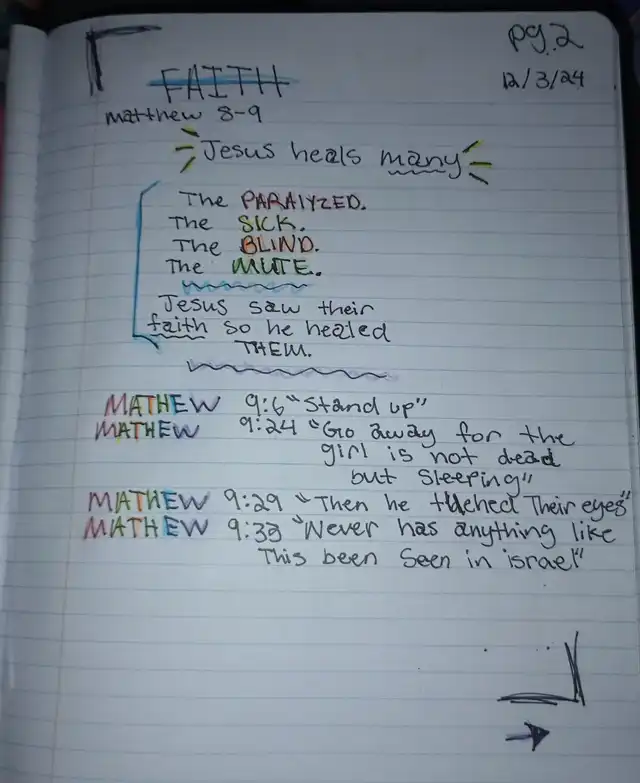 pg.2
12/3/24
FAITH
matthew 8-9
Jesus heals many
The PARALYZED.
The SICK.
The BLIND.
The MUTE.
Jesus saw their
faith so he healed
THEM.
MATHEW 9:6 "Stand up"
MATHEW 9:24 "Go away for the
girl is not dead
but Sleeping"
MATHEW 9:29 "Then he tuched Their eyes"
MATHEW 9:33 "Never has anything like
This been Seen in israel"